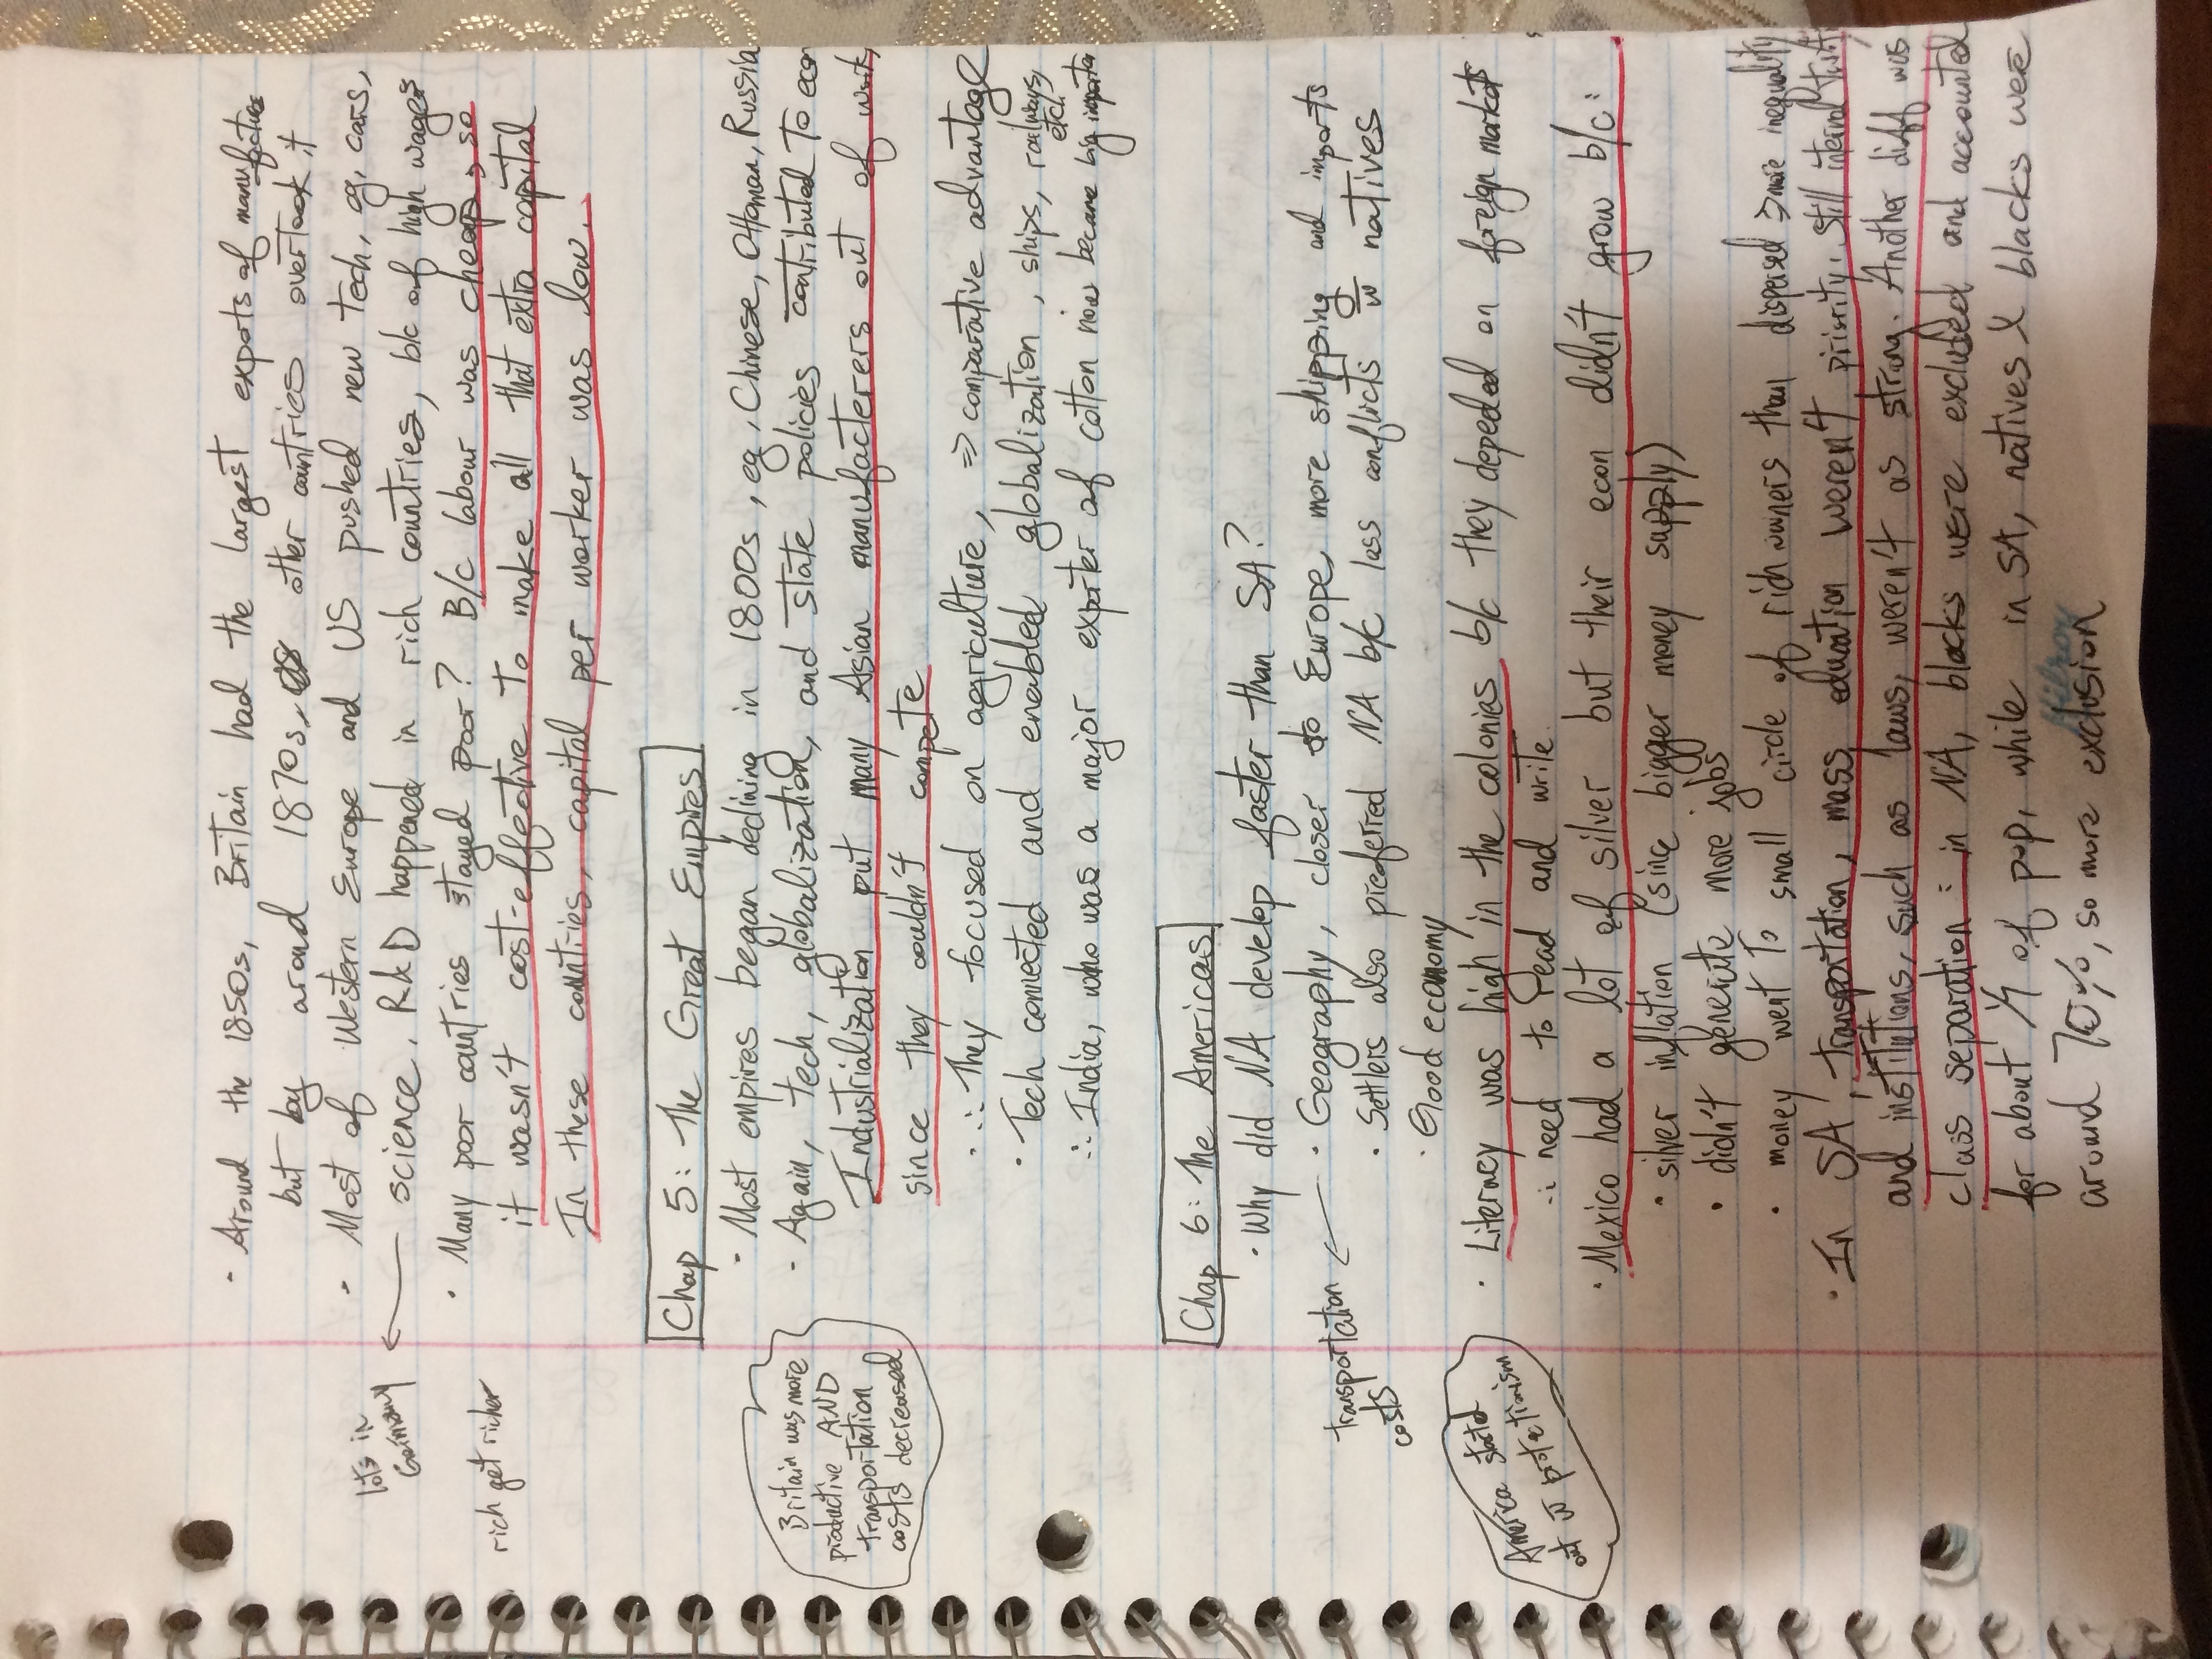 · Around the 1850s, Britain had the largest expots of manufactures
but by aroud 1870s, other countries overtook it
· Most of Western Europe and US pushed new tech, eg, cars,
lots in
Germany
science. R&D happened in rich countries, b/c of high wages
· Many poor countries stayed poor? B/c labour was cheap, so
rich get richer
it wasn't cost-effective to make all that extra capital
In these countries, capital per worker was low.
Chap 5: The Great Empires
· Most empires began declining in 1800s, eg, Chinese, Ottoman, Russia
· Again, tech, globalization, and state policies contributed to econ
Britain was more
productive AND
transportation
costs decreased
Industrialization put many Asian manufacterers out of work,
since they couldn't compete
· ∴ They focused on agriculture, ⇒ comparative advantage
· Tech connected and enabled globalization, ships, railways,
etc.
∴ India, who was a major exporter of cotton now became big importer
Chap 6: The Americas
· Why did NA develop faster than SA?
· Geography, closer to Europe, more shipping and imports
transportation
costs
· Settlers also preferred NA b/c less conflicts w̅ natives
· Good economy
· Literacy was high in the colonies b/c they depeded on foreign markets
America started
out w̅ protectionism
∴ need to read and write.
· Mexico had a lot of silver but their econ didn't grow b/c:
· silver inflation (since bigger money supply)
· didn't generate more jobs
· money went to small circle of rich owners than dispersed ⇒ more inequality
· In SA, transportation, mass education weren't priority. Still internal
and institutions, such as laws, weren't as strong. Another diff was
class separation: in NA, blacks were excluded and accounted
for about 1/7 of pop, while in SA, natives & blacks were
around 70%, so more exclusion
Hilroy